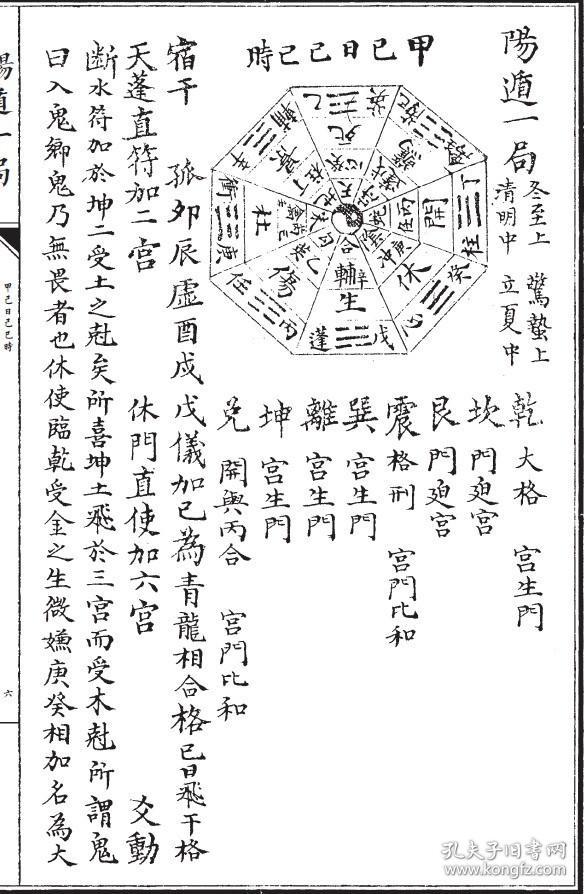 陽遁一局
冬至上 驚蟄上
清明中 立夏中
甲己日己巳時
乾 大格 宮生門
坎 門廹宮
艮 門廹宮
震 格刑 宮門比和
巽 宮生門
離 宮生門
坤 宮生門
兌 開與丙合 宮門比和
宿干 孤夘辰虛酉戍戊儀加己為青龍相合格己日飛干格
天蓬直符加二宮 休門直使加六宮 爻動
斷水符加於坤二受土之尅矣所喜坤土飛於三宮而受木尅所謂鬼
曰入鬼鄉鬼乃無畏者也休使臨乾受金之生微嫌庚癸相加名為大
陽遁一局
甲己日己巳時
六
死
開
休
生
傷
杜
輔
蓬
戊
任
丙
衝
庚
柱
丁
癸
心
孔夫子旧书网
kongfz.com